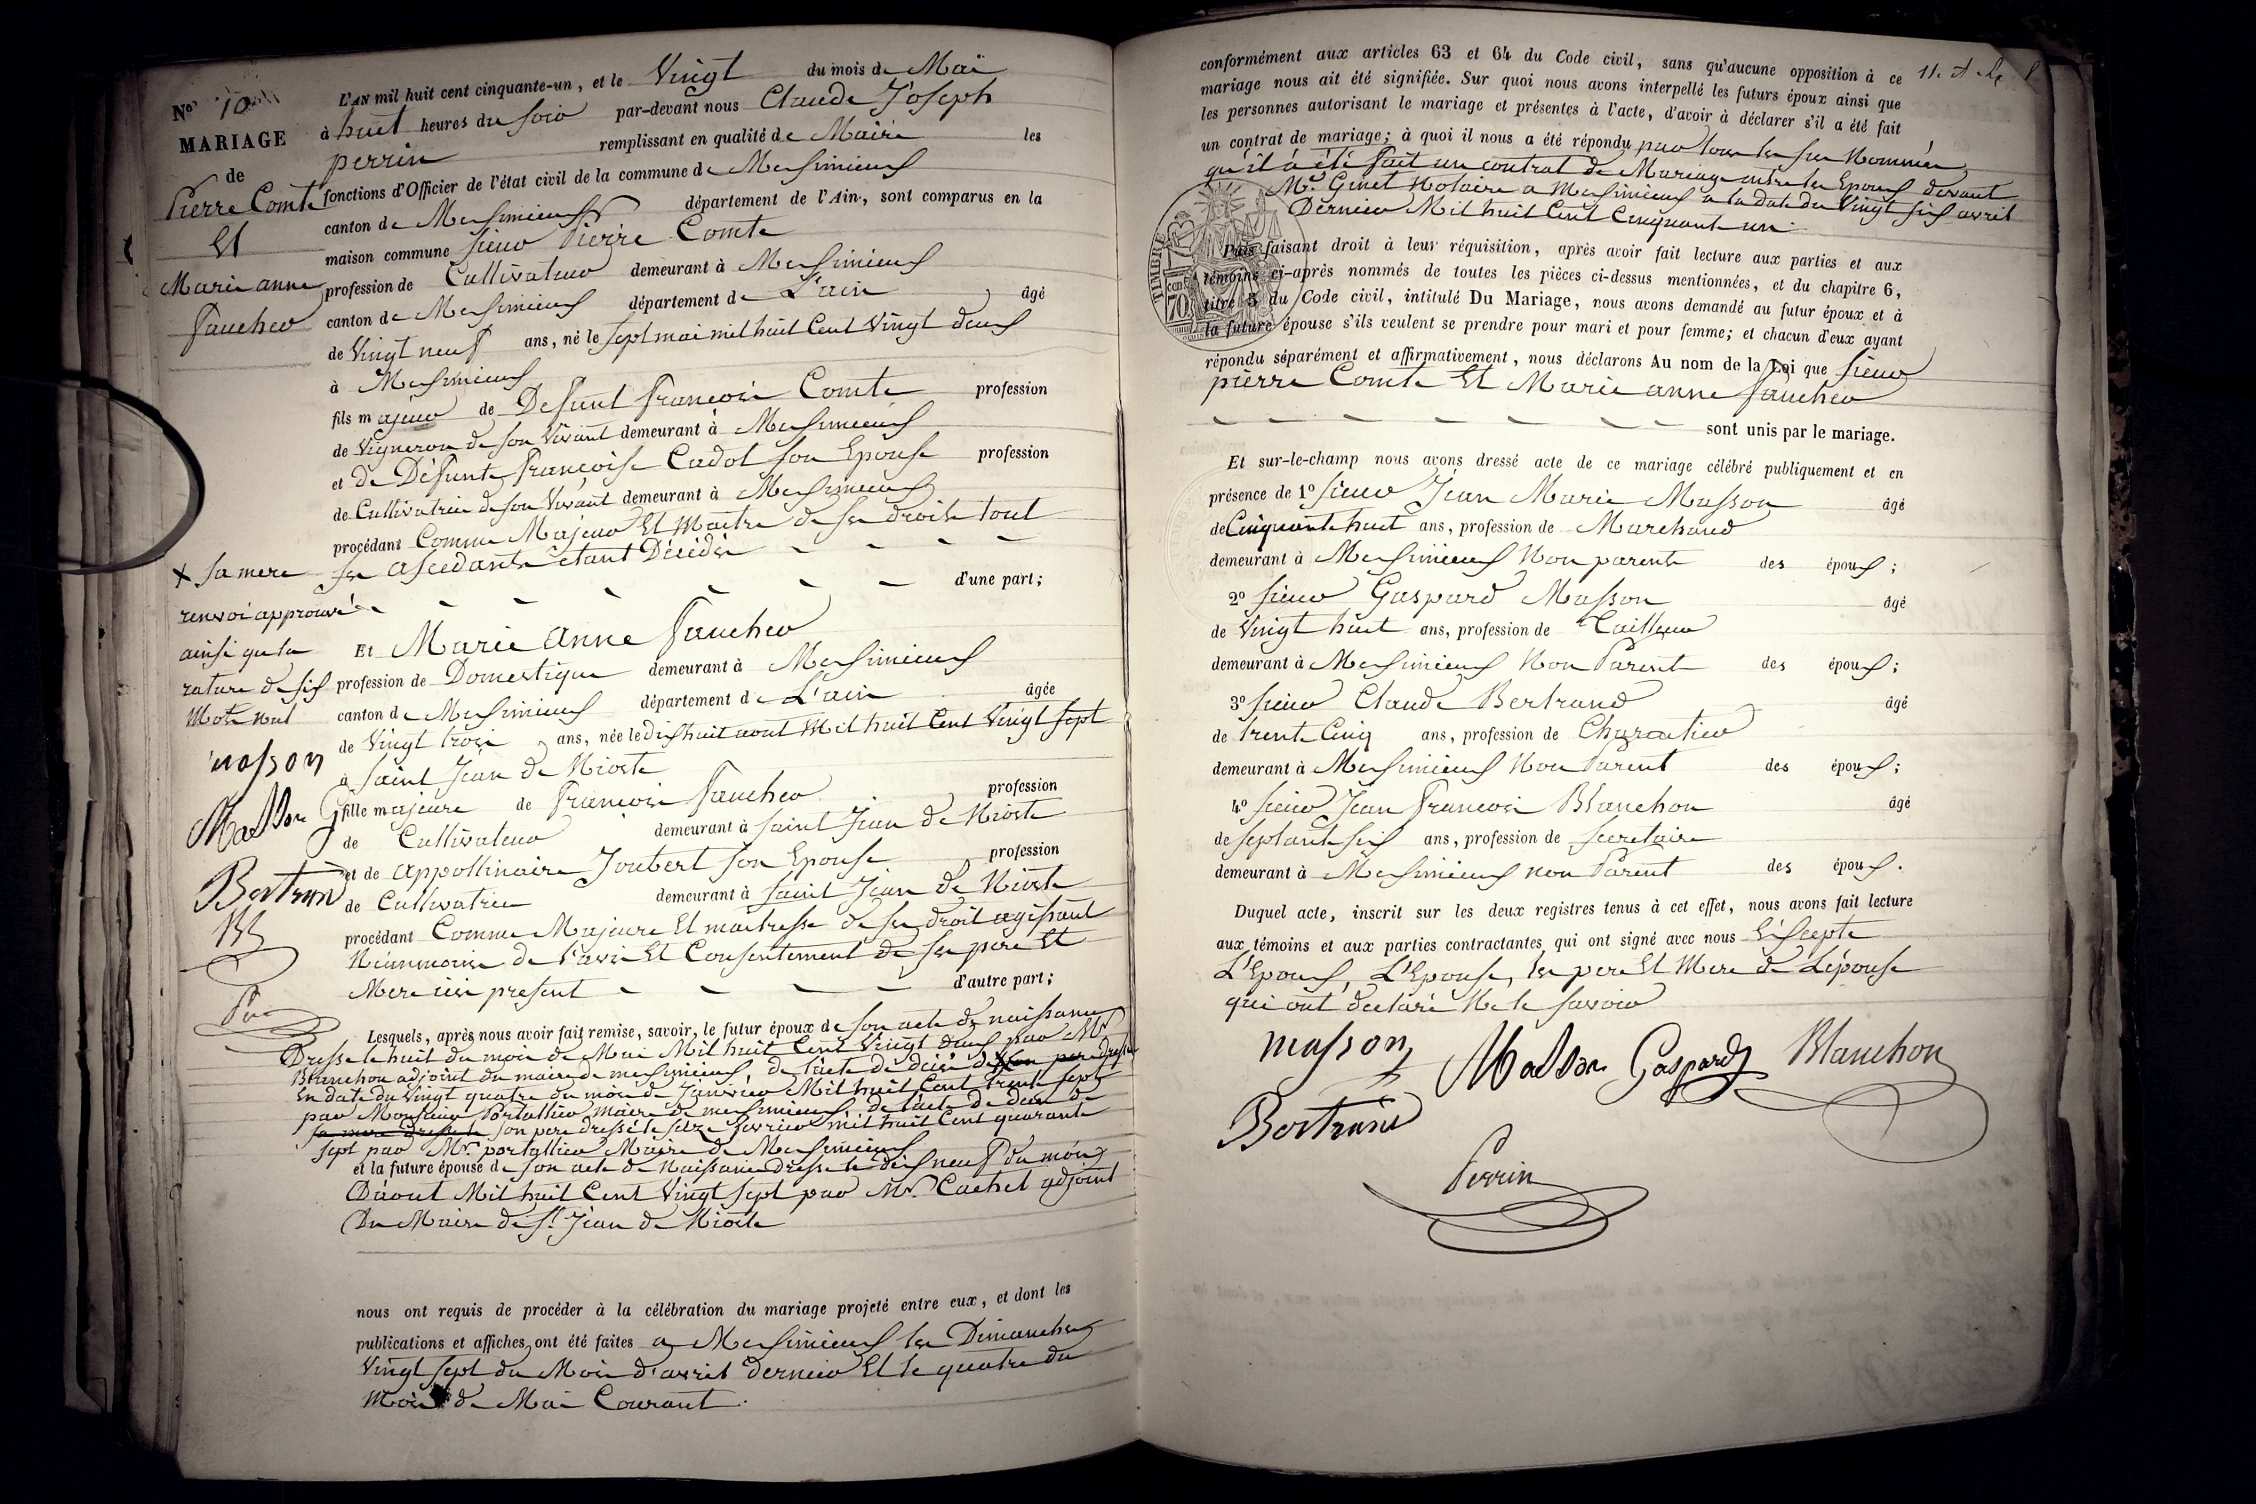 N.° 10
MARIAGE
de
Pierre Comte
Et
Marie anne
faucheur
L'AN mil huit cent cinquante-un, et le Vingt du mois de Mai
à huit heures du soir par-devant nous Claude Joseph
perrin remplissant en qualité de Maire les
fonctions d'Officier de l'état civil de la commune de Messimieux
canton de Messimieux département de l'Ain, sont comparus en la
maison commune sieur Pierre Comte
profession de Cultivateur demeurant à Messimieux
canton de Messimieux département de L'ain âgé
de Vingt neuf ans, né le sept mai mil huit Cent Vingt deux
à Messimieux
fils majeur de Defunt francois Comte profession
de Vigneron de son Vivant demeurant à Messimieux
et de Défunte francoise Cadot son Epouse profession
de Cultivatrice de son Vivant demeurant à Messimieux
procédant Comme Majeur Et Maitre de ses droits tout
ses ascedants étant Décédés
d'une part;
X sa mere
renvoi approuvé
ainsi que la
rature de six
Mots nul
masson
Masson G
Bertrand
Bl
Per
Et Marie anne faucheur
profession de Domestique demeurant à Messimieux
canton de Messimieux département de L'ain âgée
de Vingt trois ans, née le dix huit aout Mil huit Cent Vingt sept
à saint Jean de Nioste
fille majeure de francois faucheur profession
de Cultivateur demeurant à saint Jean de Nioste
et de appollinaire Joubert son Epouse profession
de Cultivatrice demeurant à saint Jean de Nioste
procédant Comme Majeure Et maitresse de ses droit agissant
Néanmoins de l'avis Et Consentement de ses pere Et
Mere ici present d'autre part;
Lesquels, après nous avoir fait remise, savoir, le futur époux de son acte de naissance
Dressé le huit du mois de Mai Mil huit Cent Vingt deux par Mr
Blanchon adjoint du maire de messimieux, de l'acte de décès de X son pere dressé
En date du Vingt quatre du mois de Janvier Mil huit Cent trente sept
par Monsieur Portallier Maire de messimieux de l'acte de deces de
sa mere dressé le son pere dressé le seize fevrier mil huit Cent quarante
sept par Mr. portallier Maire de Messimieux
et la future épouse de son acte de Naissance dressé le dix neuf du mois
D'aout Mil huit Cent Vingt sept par Mr. Cachet adjoint
Du Maire de St. Jean de Nioste
nous ont requis de procéder à la célébration du mariage projeté entre eux, et dont les
publications et affiches ont été faites a Messimieux les Dimanches
Vingt sept du Mois d'avril dernier Et le quatre du
Mois de Mai Courant.
conformément aux articles 63 et 64 du Code civil, sans qu'aucune opposition à ce
mariage nous ait été signifiée. Sur quoi nous avons interpellé les futurs époux ainsi que
les personnes autorisant le mariage et présentes à l'acte, d'avoir à déclarer s'il a été fait
un contrat de mariage; à quoi il nous a été répondu par tous les sus Nommés
qu'il a été fait un contrat de Mariage entre les Epoux devant
Mr. Ginet Notaire a Messimieux a la date du Vingt six avril
Dernier Mil huit Cent Cinquante un
TIMBRE
70
Puis faisant droit à leur réquisition, après avoir fait lecture aux parties et aux
témoins ci-après nommés de toutes les pièces ci-dessus mentionnées, et du chapitre 6,
titre 5 du Code civil, intitulé Du Mariage, nous avons demandé au futur époux et à
la future épouse s'ils veulent se prendre pour mari et pour femme; et chacun d'eux ayant
répondu séparément et affirmativement, nous déclarons Au nom de la Loi que sieur
pierre Comte Et Marie anne faucheur
sont unis par le mariage.
Et sur-le-champ nous avons dressé acte de ce mariage célébré publiquement et en
présence de 1° sieur Jean Marie Masson âgé
de Cinquante huit ans, profession de Marchand
demeurant à Messimieux Non parents des époux;
2° sieur Gaspard Masson âgé
de Vingt huit ans, profession de Tailleur
demeurant à Messimieux Non Parent des époux;
3° sieur Claude Bertrand âgé
de trente Cinq ans, profession de Charcutier
demeurant à Messimieux Non Parent des époux;
4° sieur Jean francois Blanchon âgé
de septante six ans, profession de secretaire
demeurant à Messimieux non Parent des époux.
Duquel acte, inscrit sur les deux registres tenus à cet effet, nous avons fait lecture
aux témoins et aux parties contractantes qui ont signé avec nous Excepte
L'Epoux, L'Epouse, les pere Et Mere de Lépouse
qui ont declaré Ne le savoir
masson Masson Gaspard Blanchon
Bertrand
Perrin